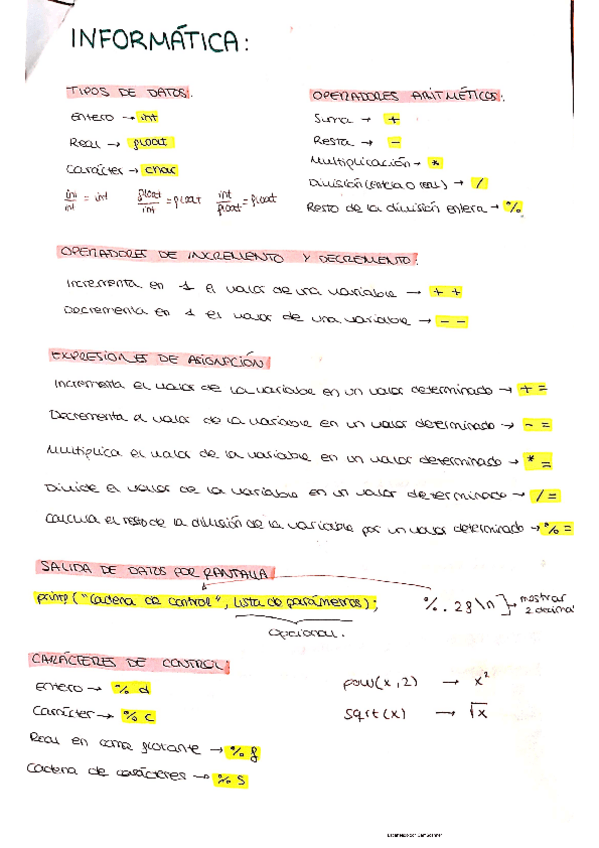 INFORMÁTICA:
TIPOS DE DATOS:
Entero → int
Real → float
Carácter → char
int/int = int float/int = float int/float = float
OPERADORES ARITMÉTICOS:
Suma → +
Resta → -
Multiplicación → *
División (entera o real) → /
Resto de la división entera → %
OPERADORES DE INCREMENTO Y DECREMENTO:
Incrementa en 1 el valor de una variable → + +
Decrementa en 1 el valor de una variable → - -
EXPRESIONES DE ASIGNACIÓN
Incrementa el valor de la variable en un valor determinado → + =
Decrementa el valor de la variable en un valor determinado → - =
Multiplica el valor de la variable en un valor determinado → * =
Divide el valor de la variable en un valor determinado → / =
Calcula el resto de la división de la variable por un valor determinado → % =
SALIDA DE DATOS POR PANTALLA
printf ("Cadena de control", lista de parámetros);
opcional.
%.2f\n] → mostrar
2 decimal
CARÁCTERES DE CONTROL:
Entero → % d
Carácter → % c
Real en coma flotante → % f
Cadena de carácteres → % s
pow(x,2) → x²
sqrt(x) → √x